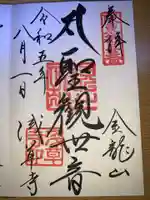 奉拝
金龍山
聖観世音
令和五年
八月一日
浅草寺